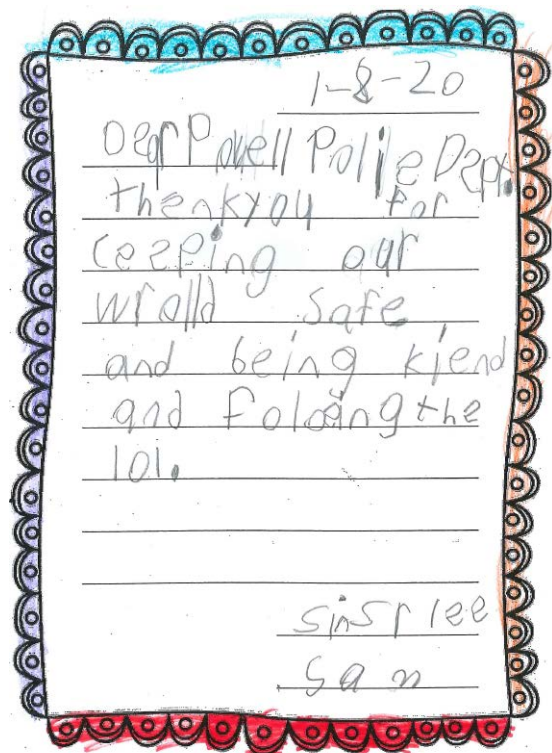 1-8-20
Dear Powell Polije Dept.
thenkyou for
ceeping our
wrolld safe
and being kjend
and foloing the
lol.
sinsrlee
Sam